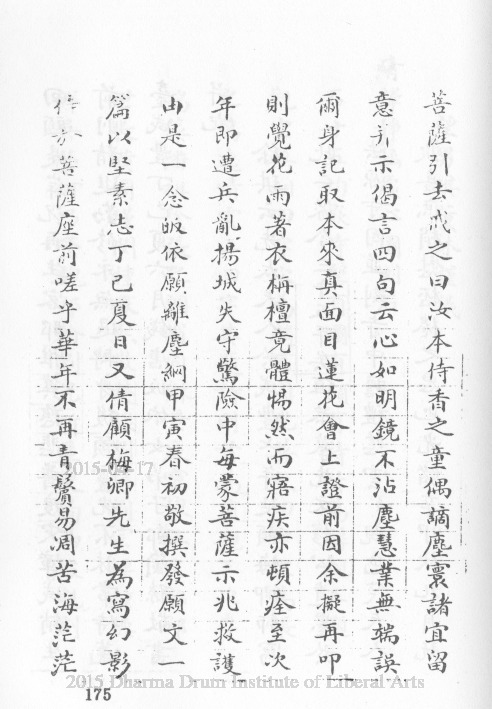 菩薩引去戒之曰汝本侍香之童偶謫塵寰諸宜留
意并示偈言四句云心如明鏡不沾塵慧業無端誤
爾身記取本來真面目蓮花會上證前因余擬再叩
則覺花雨著衣栴檀竟體惕然而寤疾亦頓痊至次
年即遭兵亂揚城失守驚險中每蒙菩薩示兆救護
由是一念皈依願離塵網甲寅春初敬撰發願文一
篇以堅素志丁巳夏日又倩顧梅卿先生為寫幻影
侍於菩薩座前嗟乎華年不再青鬢易凋苦海茫茫
175
2015 Dharma Drum Institute of Liberal Arts